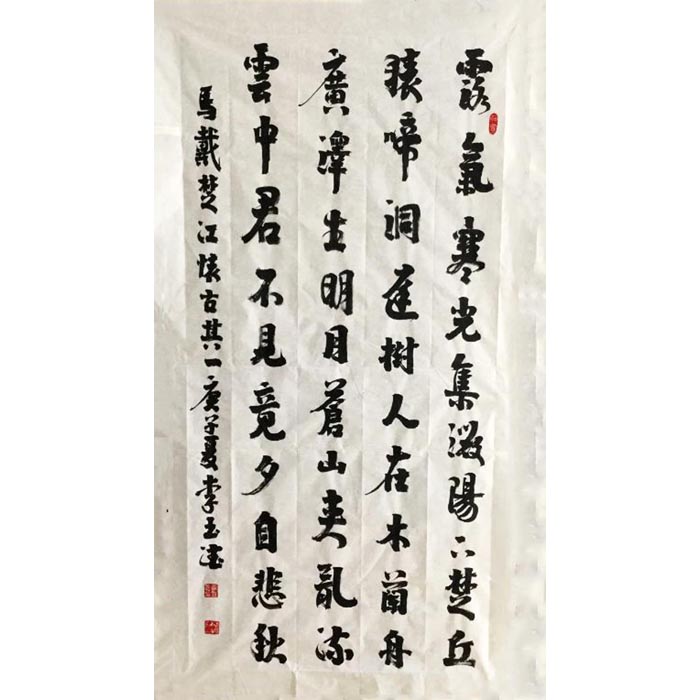 露氣寒光集微陽下楚丘
猿啼洞庭樹人在木蘭舟
廣澤生明月蒼山夾亂流
雲中君不見竟夕自悲秋
馬戴楚江懷古其一庚子夏李玉